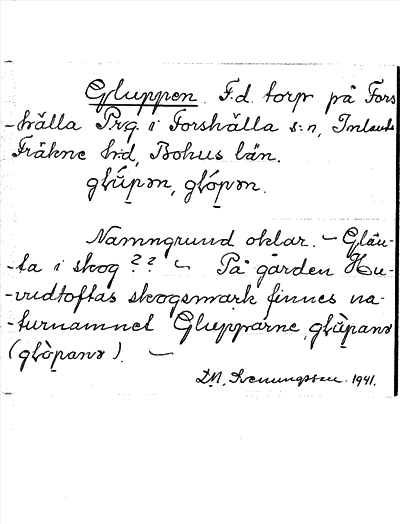 Gluppen. F.d. torp på Fors
-hälla Prg. i Forshälla s:n, Inlands
Fräkne h:d, Bohus län.
glu̇̄pən, glópən.
Namngrund oklar. – Glän-
-ta i skog?? – På gården Hu-
-vudtoftas skogsmark finnes na-
-turnamnet Glupparne, glu̇̀panə
(glòpanə). –
D.N. Svenungsson. 1941.